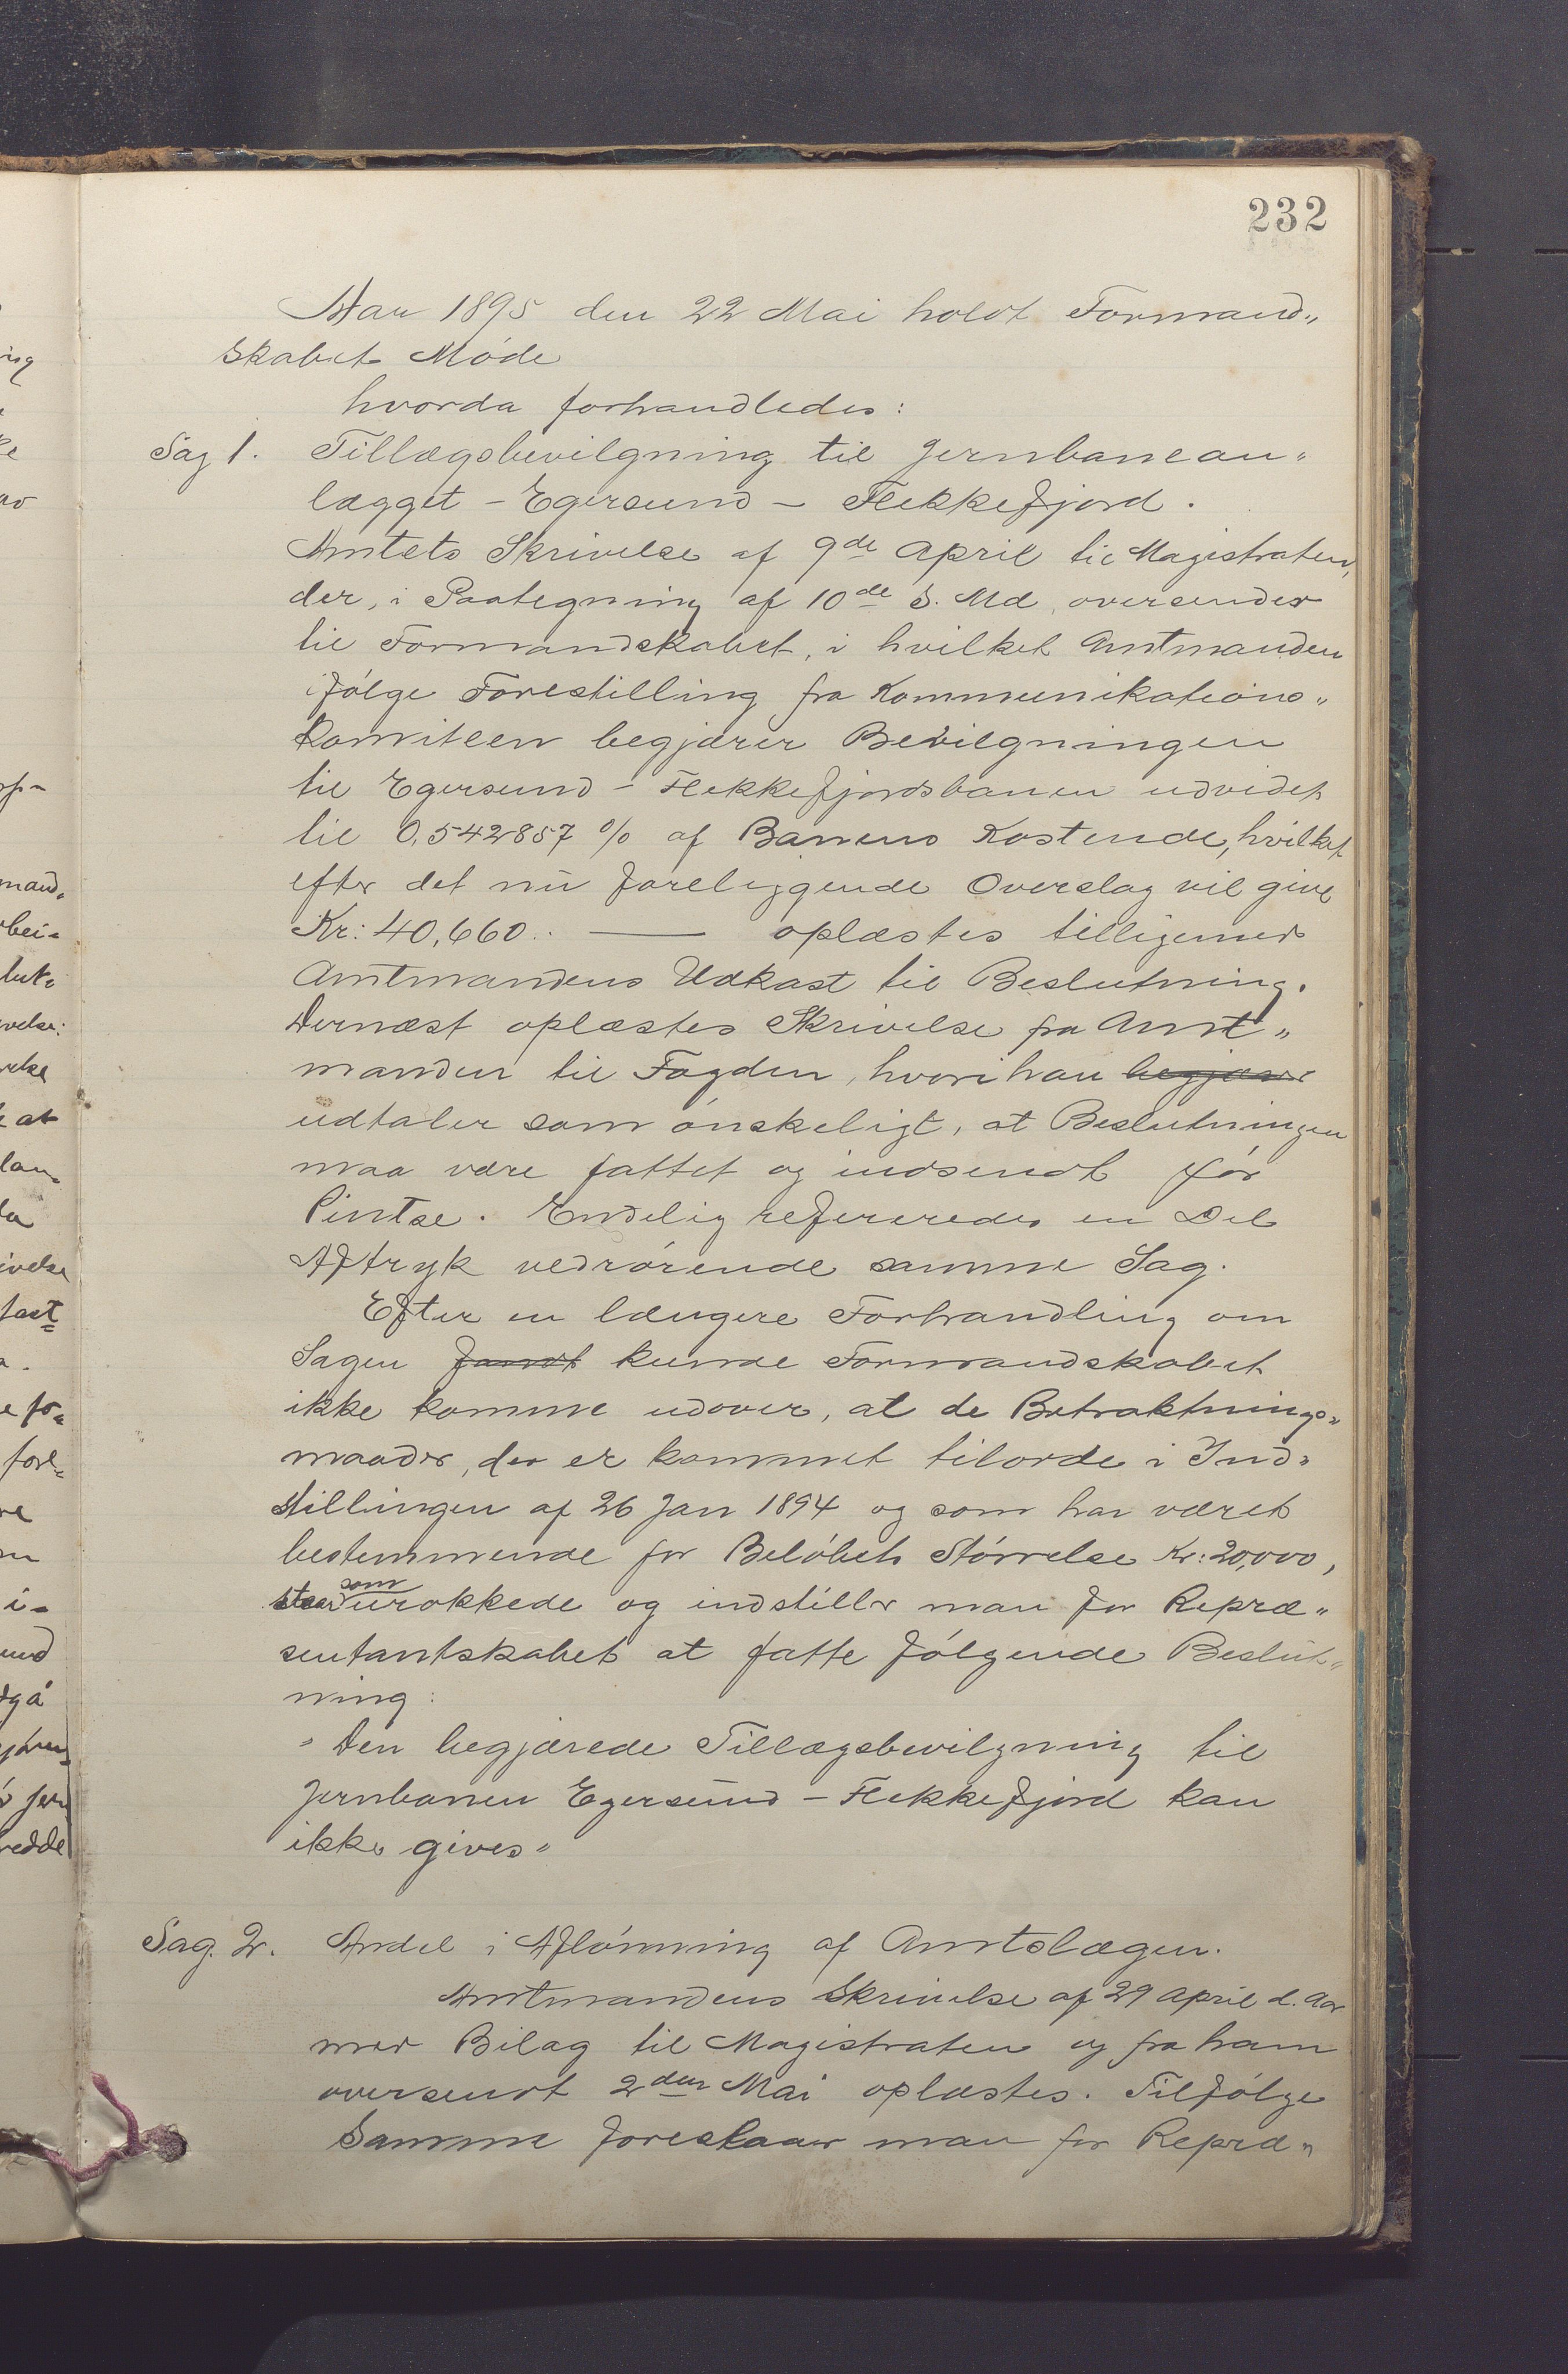 232
Aar 1895 den 22 Mai holdt Formand„
skabet Møde
hvorda forhandledes:
Sag 1. Tillægsbevilgning til Jernbanean„
lægget - Egersund - Flekkefjord.
Amtets Skrivelse af 9de April til Magistraten,
der, i Paategning af 10de s. Md. oversender
til Formandskabet, i hvilket Amtmanden
ifølge Forestilling fra Kommunikations„
komiteen begjærer Bevilgningen
til Egersund - Flekkefjordsbanen udvidet
til 0,542857 % af Banens Kostende, hvilket
efter det nu foreliggende Overslag vil give
Kr: 40,660. — oplæstes tilligemed
Amtmandens Udkast til Beslutning.
Dernæst oplæstes Skrivelse fra Amt„
manden til Fogden, hvori han begjærer
udtaler som ønskeligt, at Beslutningen
maa være fattet og indsendt før
Pintse. Endelig refereredes en Del
Aftryk vedrørende samme Sag.
Efter en længere Forhandling om
Sagen fandt kunde Formandskabet
ikke komme udover, at de Betraktnings„
maader, der er kommet tilorde i Ind„
stillingen af 26 Jan 1894 og som har været
bestemmende for Beløbets Størrelse Kr: 20,000,
staar som urokkede og indstiller man for Repræ„
sentantskabet at fatte følgende Beslut„
ning:
„Den begjærede Tillægsbevilgning til
Jernbanen Egersund - Flekkefjord kan
ikke gives„
Sag. 2. Andel i Aflønning af Amtslægen.
Amtmandens Skrivelse af 29 April d. Aar
med Bilag til Magistraten og fra ham
oversendt 2den Mai oplæstes. Tilfølge
Samme foreslaar man for Repræ„